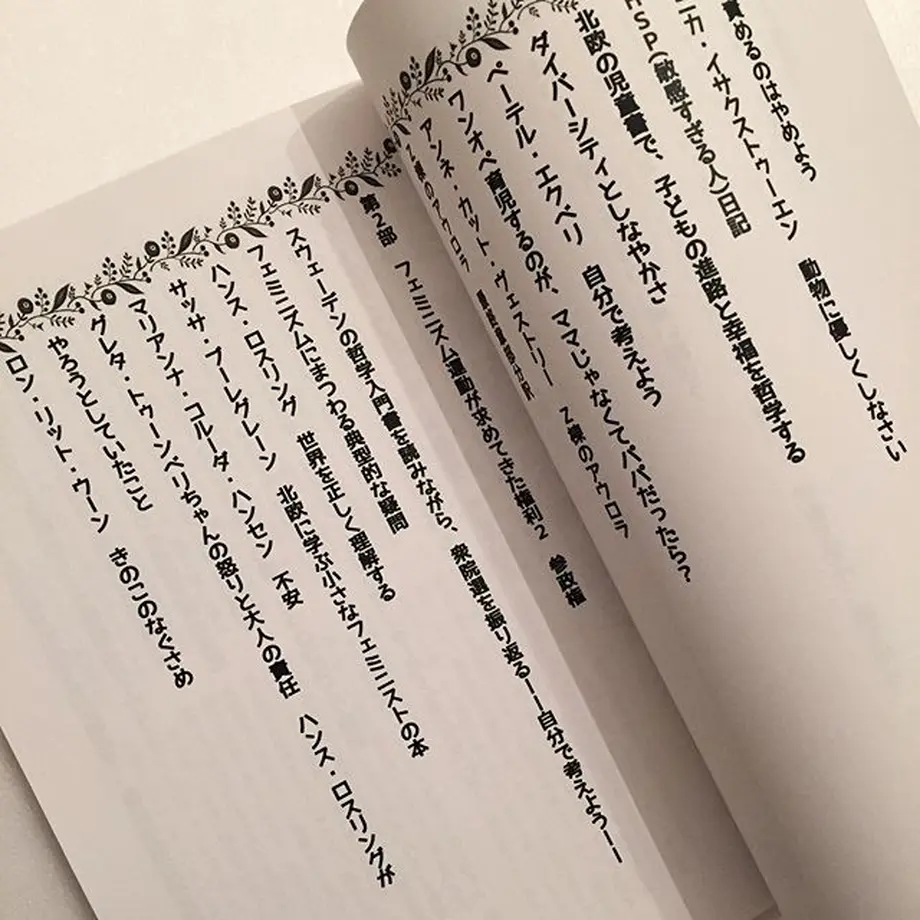 責めるのはやめよう
ニカ・イサクストゥーエン 動物に優しくしなさい
HSP(敏感すぎる人)日記
北欧の児童書で、子どもの進路と幸福を哲学する
ダイバーシティとしなやかさ
ペーテル・エクベリ 自分で考えよう
ワンオペ育児するのが、ママじゃなくてパパだったら?
アンネ・カット・ヴェストリー Z棟のアウロラ
Z棟のアウロラ
第2部 フェミニズム運動が求めてきた権利2 参政権
スウェーデンの哲学入門書を読みながら、衆院選を振り返るーー自分で考えようーー
フェミニズムにまつわる典型的な疑問
ハンス・ロスリング 世界を正しく理解する
サッサ・ブーレグレーン 北欧に学ぶ小さなフェミニストの本
マリアンナ・コルーダ・ハンセン 不安
グレタ・トゥーンベリちゃんの怒りと大人の責任 ハンス・ロスリングが
やろうとしていたこと
ロン・リット・ウーン きのこのなぐさめ